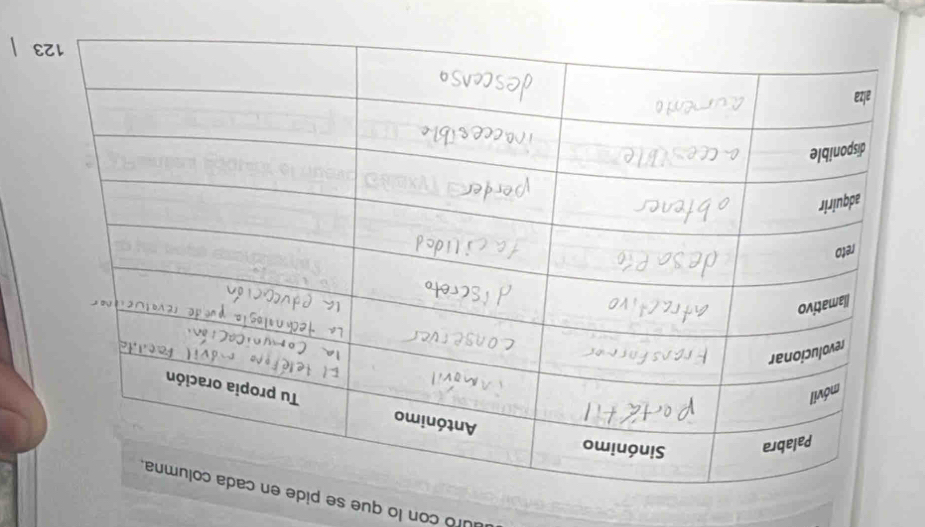 cuadro con lo que se pide en cada columna.
Palabra Sinónimo Antónimo Tu propia oración
móvil Portátil inmóvil El teléfono móvil facilita
la comunicación.
revolucionar transformar conserver La technología puede revolucionar
la educación
llamativo atractivo discreto
reto desafío facilided
adquirir obtener perder
disponible accesible inaccesible
alza aumento descenso
123